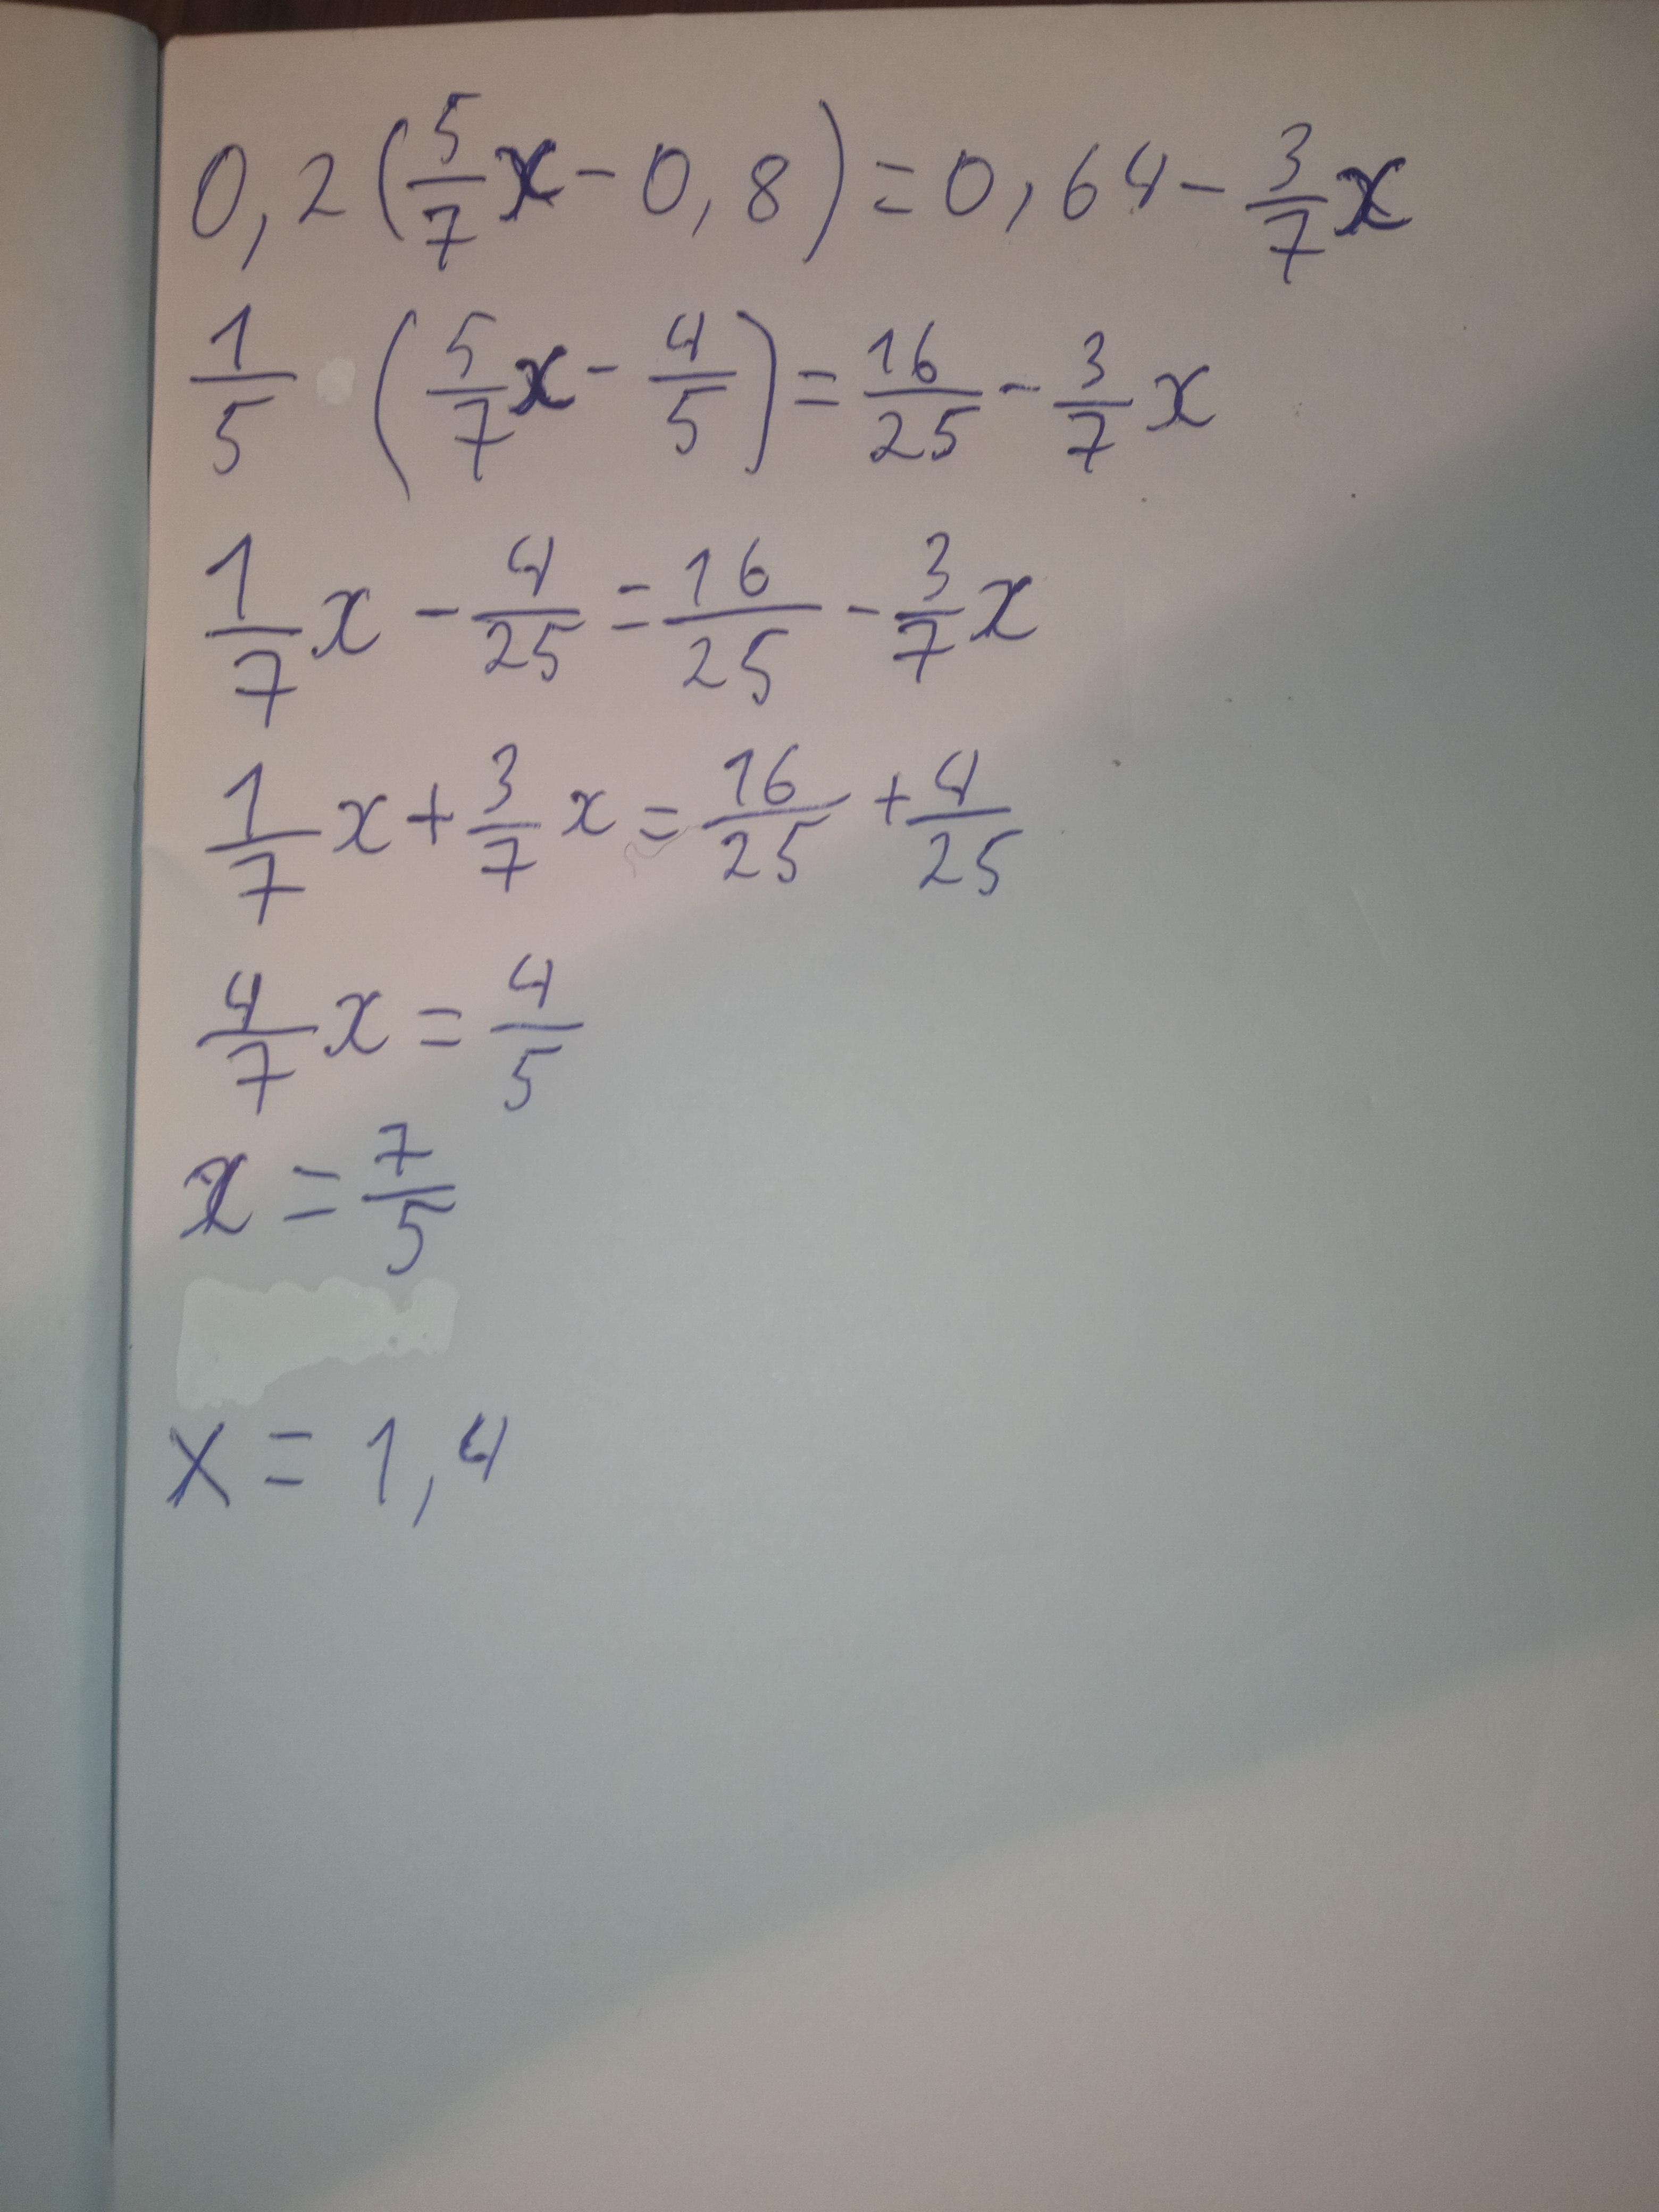 0,2(5/7x-0,8)=0,64-3/7x
1/5 (5/7x-4/5)=16/25-3/7x
1/7x-4/25=16/25-3/7x
1/7x+3/7x=16/25+4/25
4/7x=4/5
x=7/5
x=1,4